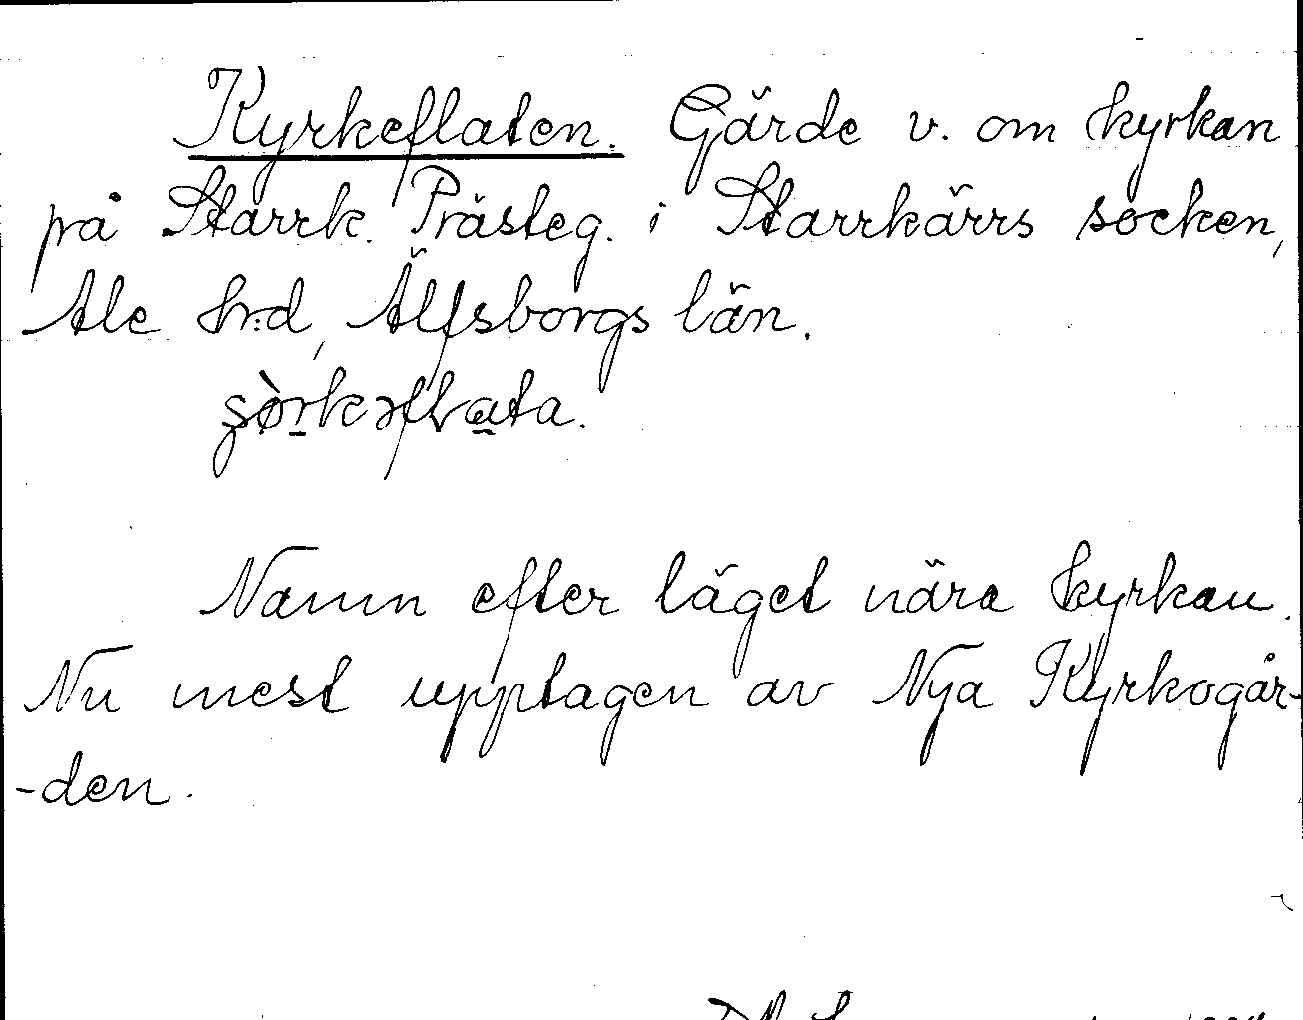 Kyrkeflaten. Gärde v. om kyrkan
på Starrk. Prästeg. i Starrkärrs socken,
Ale hrd, Älfsborgs län.
Namn efter läget nära kyrkan.
Nu mest upptagen av Nya Kyrkogår-
-den.